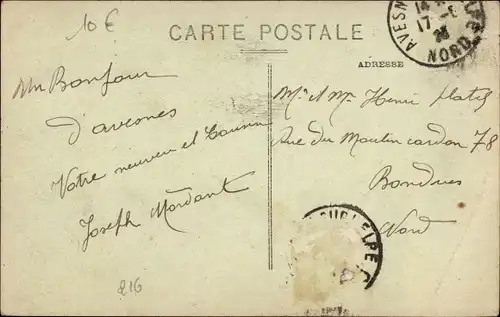 10 €
CARTE POSTALE
ADRESSE
AVESN
17 -
NORD
Un Bonjour
d'avesnes
Votre neuveu et Cousin
Joseph Mordant
Mr et Mme Henri Platel
Rue du Moulin cardon 78
Bondues
Nord
216